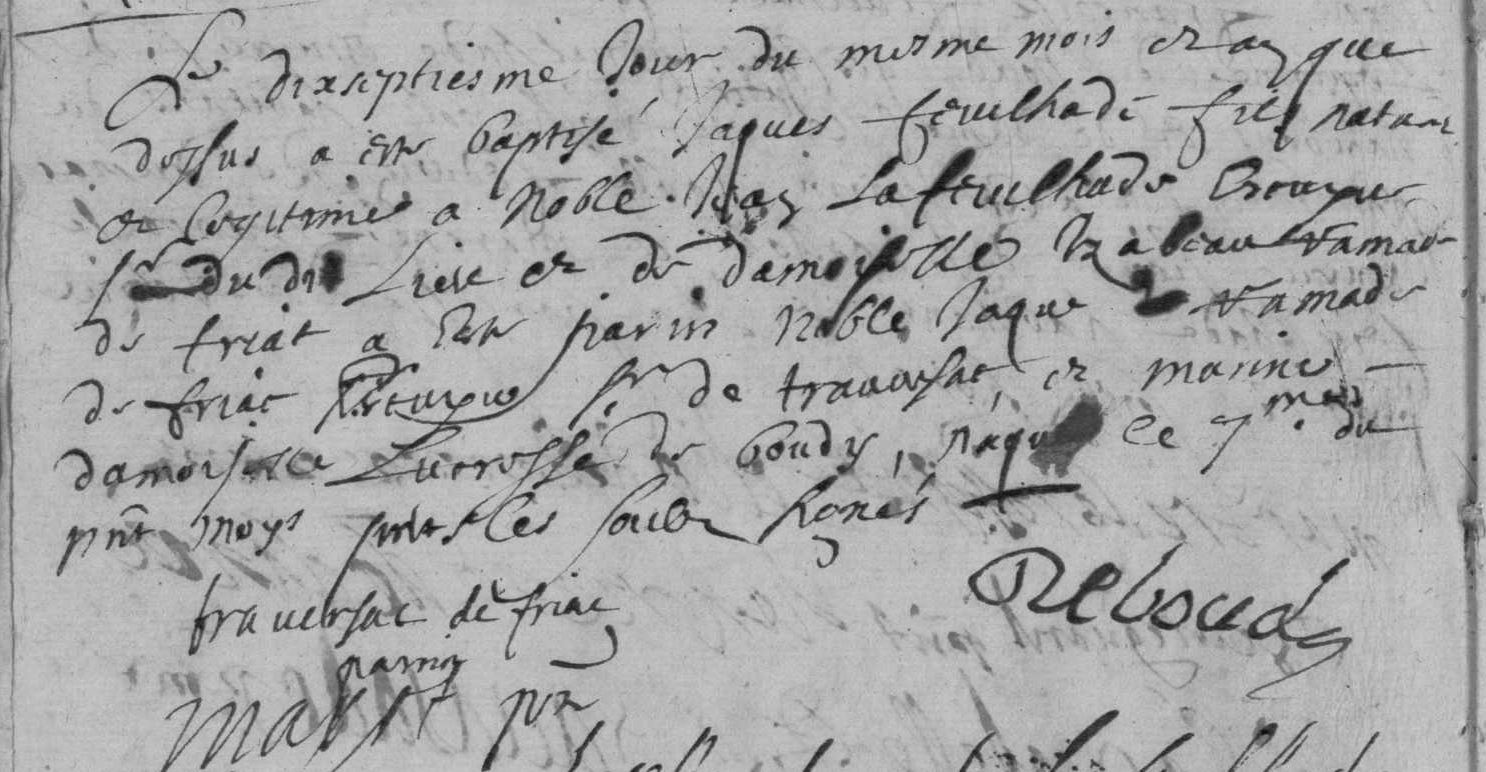 Le dixseptiesme Jour du mesme mois et an que
dessus a este baptisé Jaques feuilhade fils naturel
et legitime a Noble Jean Lafeuilhade Escuyer
Sr du dit Lieu et de damoiselle Izabeau Ramade
de friat a este parin Noble Jaque Ramade
de friac Escuyer sr de traversac, et marine
damoiselle Lucresse de boudy, naquit le 7me du
pnt moys pnts les soubz signés
traversac de friac
parin
Reboud
Mas pnt